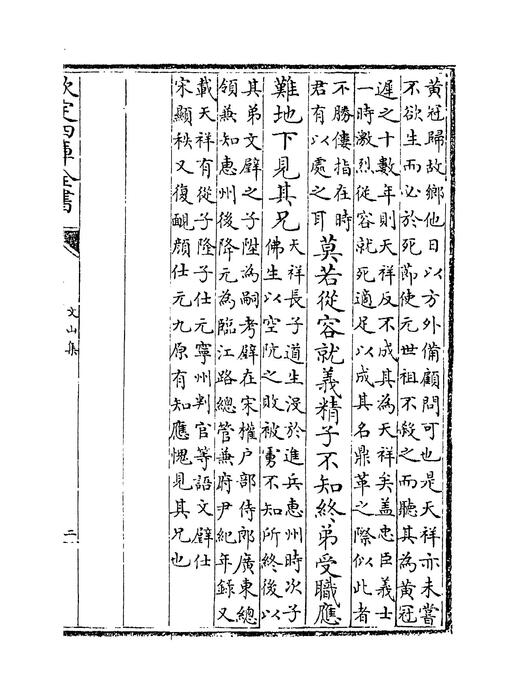 黄冠歸故鄉他日以方外備顧問可也是天祥亦未嘗
不欲生而必於死節使元世祖不殺之而聽其為黄冠
遲之十數年則天祥反不成其為天祥矣蓋忠臣義士
一時激烈從容就死適足以成其名鼎革之際似此者
不勝僂指在時
君有以處之耳
莫若從容就義精子不知終弟受職應
難地下見其兄
天祥長子道生沒於進兵惠州時次子
佛生以空阬之敗被虜不知所終後以
其弟文璧之子陞為嗣考璧在宋權户部侍郎廣東總
領兼知惠州後降元為臨江路總管兼府尹紀年録又
載天祥有從子隆子仕元寧州判官等語文璧仕
宋顯秩又復靦顔仕元九原有知應愧見其兄也
欽定四庫全書
文山集
二